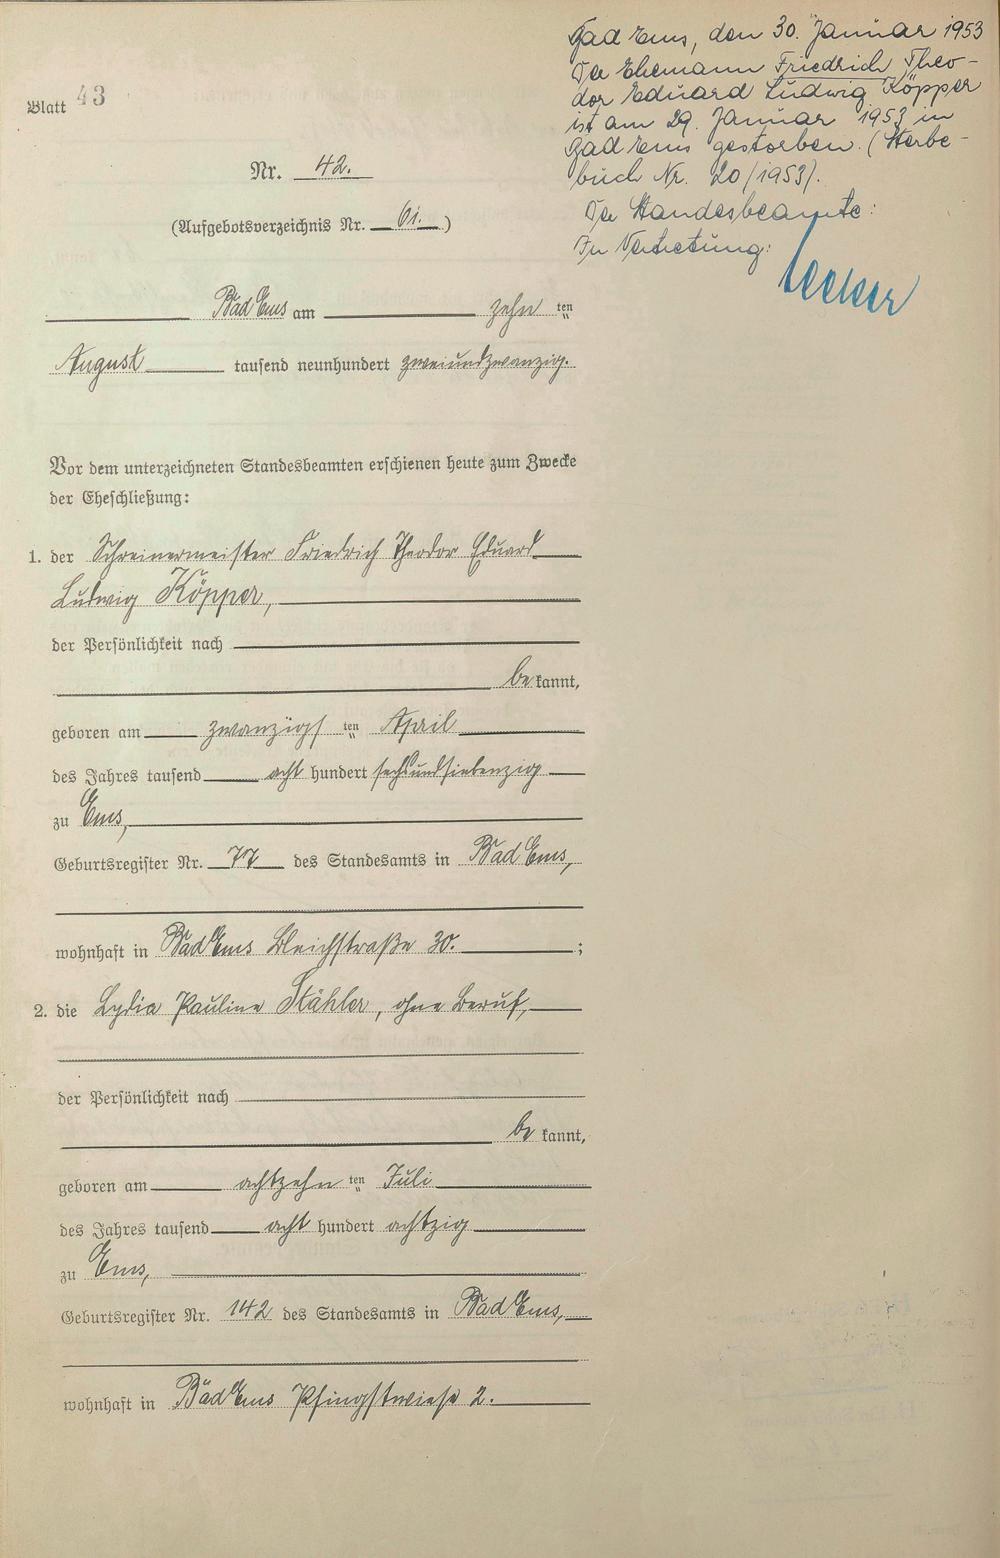 Blatt 43
Bad Ems, den 30. Januar 1953
Der Ehemann Friedrich Theo-
dor Eduard Ludwig Köpper
ist am 29. Januar 1953 in
Bad Ems gestorben. (Sterbe-
buch Nr. 20/1953).
Der Standesbeamte:
In Vertretung:
Nr. 42.
(Aufgebotsverzeichnis Nr. 61.)
Bad Ems am zehn ten
August tausend neunhundert zweiundzwanzig.
Vor dem unterzeichneten Standesbeamten erschienen heute zum Zwecke
der Eheschließung:
1. der Schreinermeister Friedrich Theodor Eduard
Ludwig Köpper,
der Persönlichkeit nach
be kannt,
geboren am zwanzigs ten April
des Jahres tausend acht hundert sechsundsiebenzig
zu Ems,
Geburtsregister Nr. 77 des Standesamts in Bad Ems,
wohnhaft in Bad Ems Bleichstraße 30. ;
2. die Lydia Pauline Stähler, ohne Beruf,
der Persönlichkeit nach
be kannt,
geboren am achtzehn ten Juli
des Jahres tausend acht hundert achtzig
zu Ems,
Geburtsregister Nr. 142 des Standesamts in Bad Ems,
wohnhaft in Bad Ems Pfingstwiese 2.